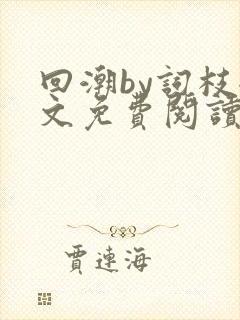 回潮by詞枝
文免費閱讀
賈連海